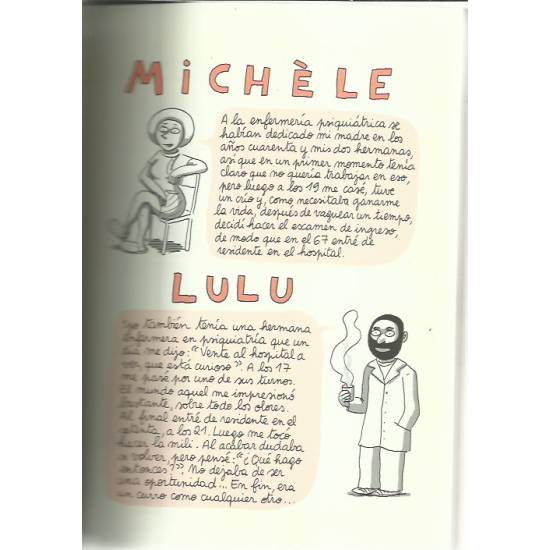 MiCHÈLE
A la enfermería psiquiátrica se
habían dedicado mi madre en los
años cuarenta y mis dos hermanas,
así que en un primer momento tenía
claro que no quería trabajar en eso,
pero luego a los 19 me casé, tuve
un crío y, como necesitaba ganarme
la vida, después de vaguear un tiempo,
decidí hacer el examen de ingreso,
de modo que en el 67 entré de
residente en el hospital.
LULU
Yo también tenía una hermana
enfermera en psiquiatría que un
día me dijo: "Vente al hospital a
ver, que está curioso". A los 17
me pasé por uno de sus turnos.
El mundo aquel me impresionó
bastante, sobre todo los olores.
Al final entré de residente en el
setenta, a los 21. Luego me tocó
hacer la mili. Al acabar dudaba
en volver, pero pensé: "¿Qué hago
entonces?". No dejaba de ser
una oportunidad... En fin, era
un curro como cualquier otro...